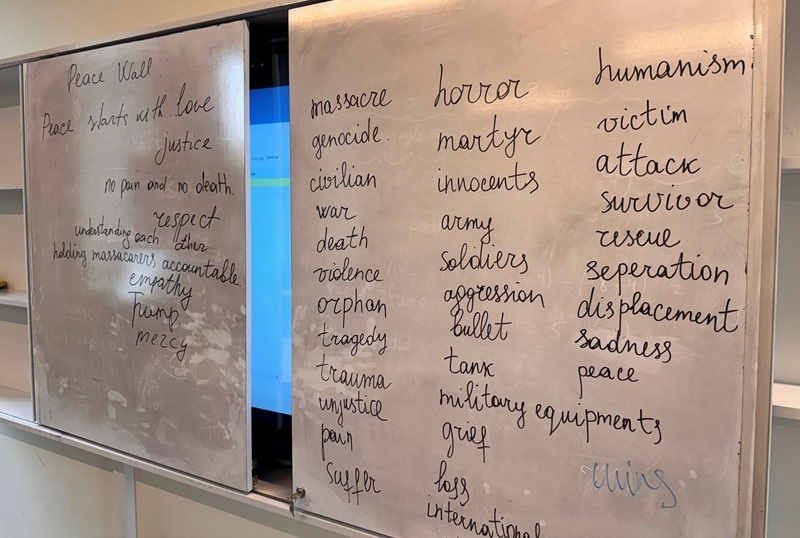 Peace Wall
Peace starts with love
justice
no pain and no death.
respect
understanding each other
holding massacarers accountable
empathy
Trump
mercy
massacre
genocide.
civilian
war
death
violence
orphan
tragedy
trauma
unjustice
pain
suffer
horror
martyr
innocents
army
soldiers
aggression
bullet
tank
military equipments
grief
loss
international
humanism.
victim
attack
survivor
rescue
seperation
displacement
sadness
peace